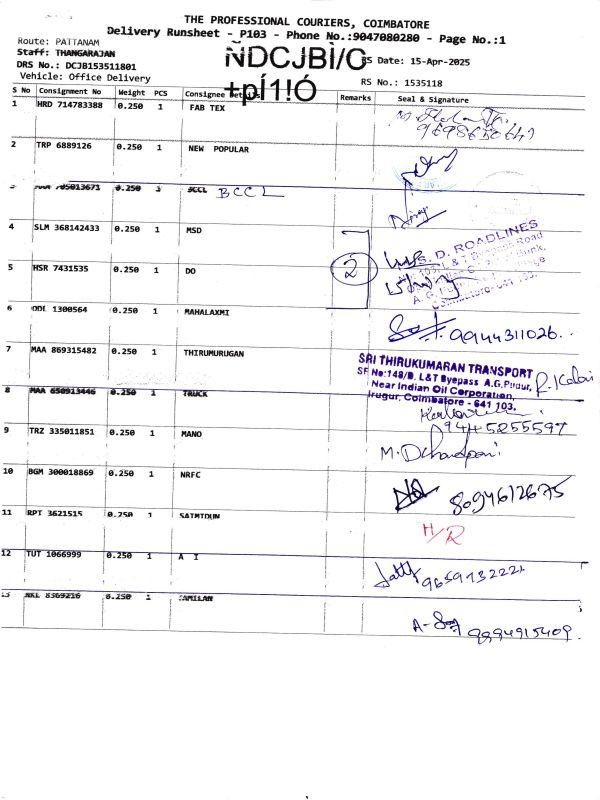 THE PROFESSIONAL COURIERS, COIMBATORE
Delivery Runsheet - P103 - Phone No.:9047080280 - Page No.:1
Route: PATTANAM
Staff: THANGARAJAN
ÑDCJBÌ/G
RS Date: 15-Apr-2025
DRS No.: DCJB153511801
+pÍ1!Ó
Vehicle: Office Delivery
RS No.: 1535118
S No Consignment No Weight PCS Consignee Details Remarks Seal & Signature
1 HRD 714783388 0.250 1 FAB TEX
2 TRP 6889126 0.250 1 NEW POPULAR
3 MAA 705013671 0.250 1 BCCL BCCL
4 SLM 368142433 0.250 1 MSD
S. D. ROADLINES
5 HSR 7431535 0.250 1 DO 2
6 DDL 1300564 0.250 1 MAHALAXMI
9944311026
7 MAA 869315482 0.250 1 THIRUMURUGAN
SRI THIRUKUMARAN TRANSPORT
SF No:148/B, L&T Byepass A.G.Pudur,
Near Indian Oil Corporation,
Irugur, Coimbatore - 641 103.
8 MAA 650913446 0.250 1 TRUCK
9445255597
9 TRZ 335011851 0.250 1 MANO
10 BGM 300018869 0.250 1 NRFC
8094612675
11 RPT 3621515 0.250 1 SATMTDUN
H/R
12 TUT 1066999 0.250 1 A I
9659132221
13 NKL 8369216 0.250 1 TAMILAN
9894915409